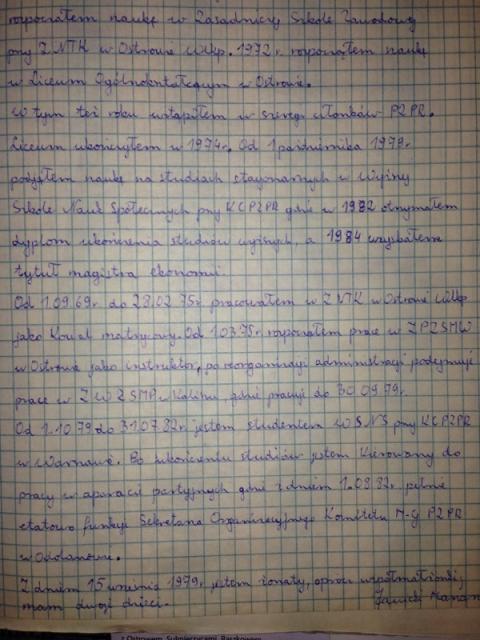 rozpocząłem naukę w Zasadniczej Szkole Zawodowej
przy ZNTK w Ostrowie Wlkp. 1972 r. rozpocząłem naukę
w Liceum Ogólnokształcącym w Ostrowie.
W tym też roku wstąpiłem w szeregi członków PZPR.
Liceum ukończyłem w 1974r. Od 1 października 1979r
podjąłem naukę na studiach stacjonarnych w Wyższej
Szkole Nauk Społecznych przy KC PZPR gdzie w 1982 otrzymałem
dyplom ukończenia studiów wyższych, a 1984 uzyskałem
tytuł magistra ekonomii.
Od 1.09.69r. do 28.02.75r pracowałem w ZNTK w Ostrowie Wlkp
jako Kowal matrycowy. Od 1.03.75r. rozpocząłem pracę w ZP ZSMW
w Ostrowie jako instruktor, po reorganizacji administracji podejmuję
pracę w ZW ZSMP w Kaliszu, gdzie pracuję do 30.09.79r.
Od 1.10.79 do 31.07.82r. jestem studentem WSNS przy KC PZPR
w Warszawie. Po ukończeniu studiów jestem kierowany do
pracy w aparacie partyjnym gdzie z dniem 1.08.82r. pełnię
etatowo funkcję Sekretarza Organizacyjnego Komitetu M-G PZPR
w Odolanowie.
Z dniem 15 września 1979r. jestem żonaty, oprócz współmałżonki,
mam dwoje dzieci.
z Ostrowem, Sulmierzycami, Raszkowem